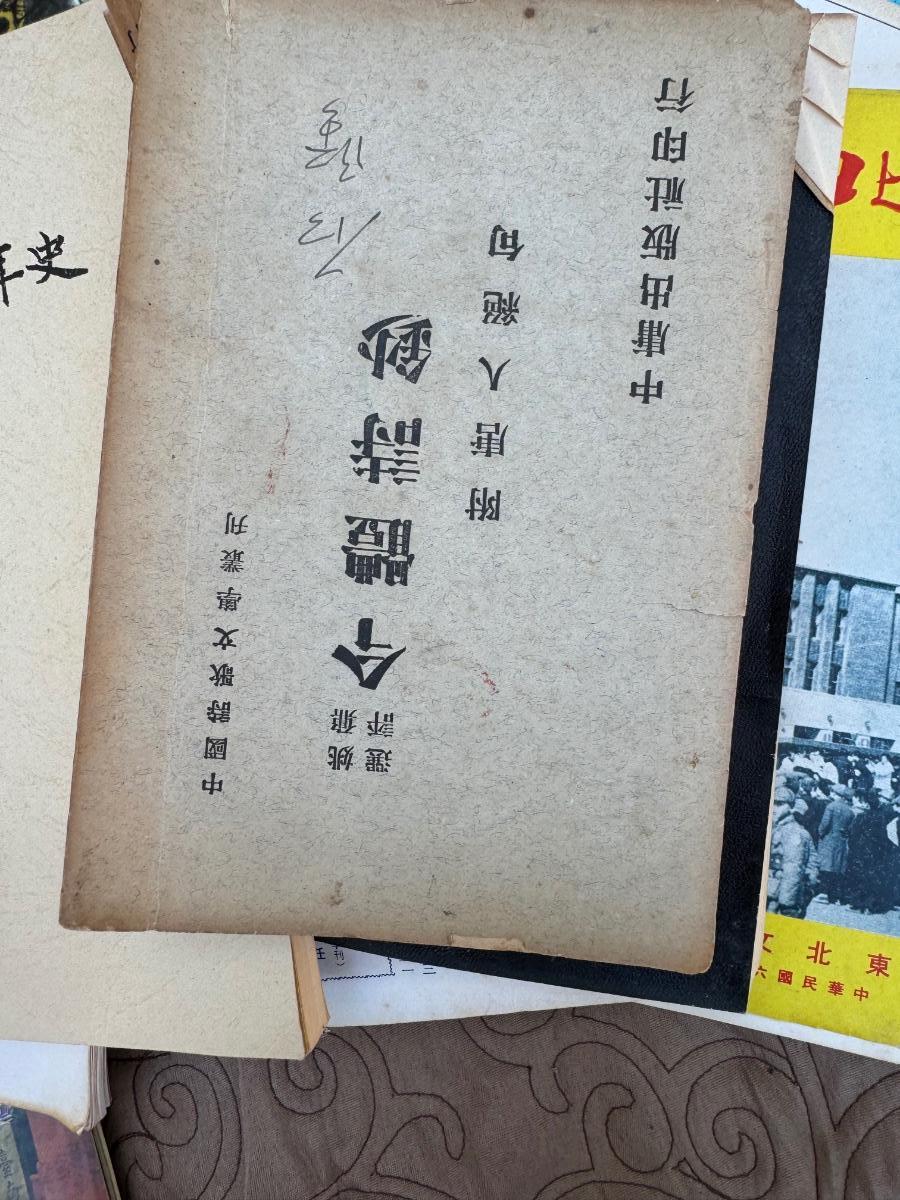 中國詩歌文學叢刊
姚鼐
選評
今體詩鈔
附唐人絕句
中庸出版社印行
年史
東北文
中華民國六